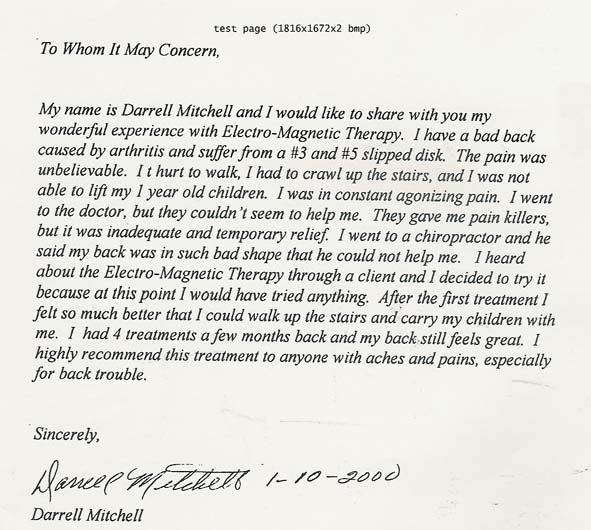 test page (1816x1672x2 bmp)
To Whom It May Concern,
My name is Darrell Mitchell and I would like to share with you my
wonderful experience with Electro-Magnetic Therapy.  I have a bad back
caused by arthritis and suffer from a #3 and #5 slipped disk.  The pain was
unbelievable.  I t hurt to walk, I had to crawl up the stairs, and I was not
able to lift my 1 year old children.  I was in constant agonizing pain.  I went
to the doctor, but they couldn't seem to help me.  They gave me pain killers,
but it was inadequate and temporary relief.  I went to a chiropractor and he
said my back was in such bad shape that he could not help me.  I heard
about the Electro-Magnetic Therapy through a client and I decided to try it
because at this point I would have tried anything.  After the first treatment I
felt so much better that I could walk up the stairs and carry my children with
me.  I had 4 treatments a few months back and my back still feels great.  I
highly recommend this treatment to anyone with aches and pains, especially
for back trouble.
Sincerely,
Darrell Mitchell 1-10-2000
Darrell Mitchell